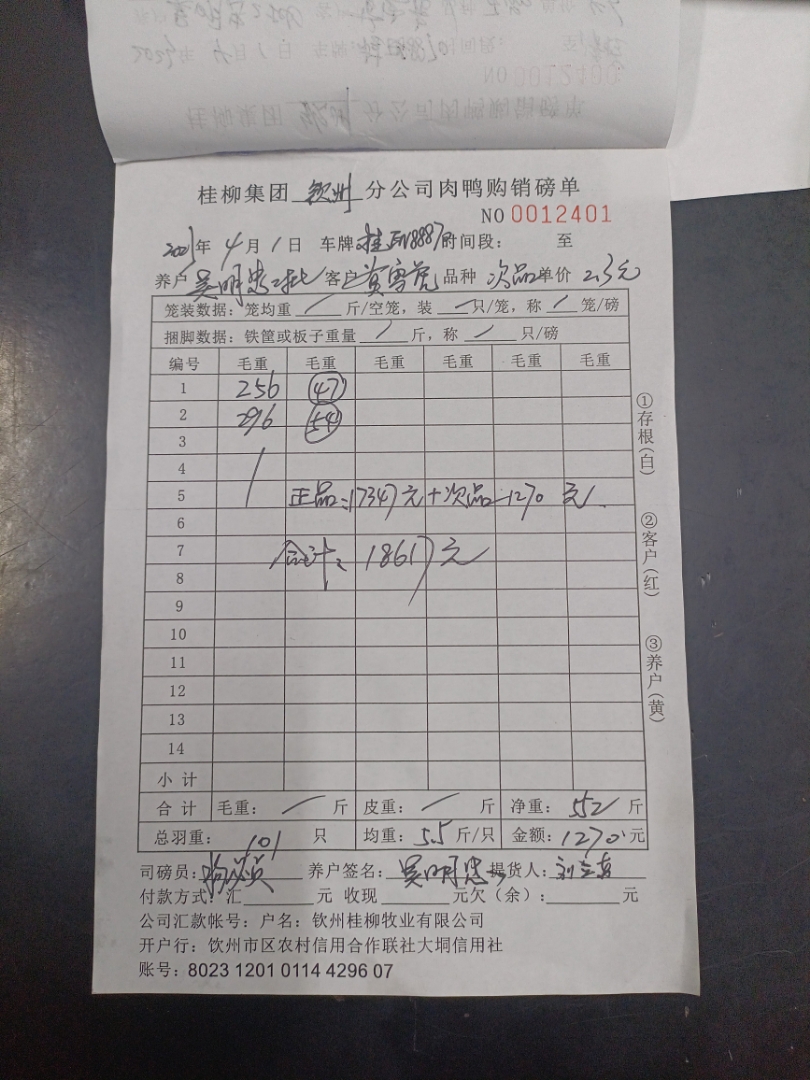 桂柳集团 钦州 分公司肉鸭购销磅单
NO 0012401
2023年 4月 1日 车牌 桂 时间段: 至
养户 吴明忠二批 客户 黄雪虎 品种 次品 单价 2.3元
笼装数据: 笼均重 / 斤/空笼, 装 一 只/笼, 称 / 笼/磅
捆脚数据: 铁筐或板子重量 / 斤, 称 / 只/磅
编号 毛重 毛重 毛重 毛重 毛重 毛重
1 256 47
2 296 54
3
4
5 正品:17347元+次品1270元.
6
7 合计: 18617元
8
9
10
11
12
13
14
小计
合计 毛重: / 斤 皮重: / 斤 净重: 552 斤
总羽重: 101 只 均重: 5.5 斤/只 金额: 1270 元
司磅员: 养户签名: 吴明忠 提货人:
付款方式: 汇 元 收现 元欠(余): 元
公司汇款帐号: 户名: 钦州桂柳牧业有限公司
开户行: 钦州市区农村信用合作联社大垌信用社
账号: 8023 1201 0114 4296 07
①存根(白)
②客户(红)
③养户(黄)